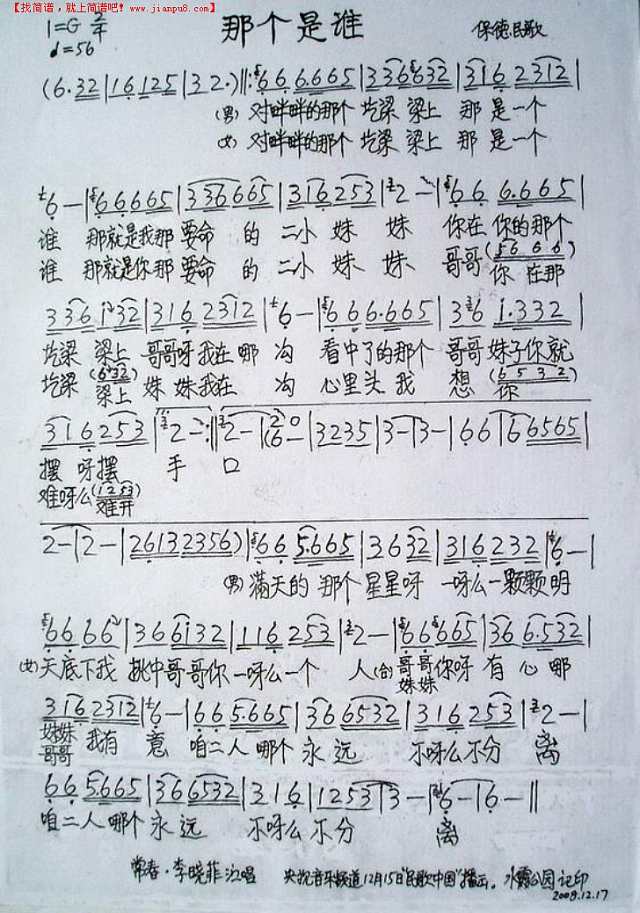 【找简谱，就上简谱吧!www.jianpu8.com】
1=G 2/4
♩=56
那个是谁
保德民歌
(6·32|16125|32·)‖:66 6.665|336632|316 2312|
(男) 对畔畔的那个 圪梁 梁上 那 是一个
(女) 对畔畔的那个 圪梁 梁上 那 是一个
6-|66665|336665|316253|2-|66 6.665|
谁 那就是我那 要命 的 二小 妹 妹 你在 你的那个
谁 那就是你那 要命 的 二小 妹 妹 哥哥(5666)你 在那
336 132|316 2312|6-|66 6.665|3 36 1.332|
圪梁 梁上 哥哥呀我在 哪 沟 看中了的那个 哥哥 妹子你就
圪梁 (6332)梁上 妹 妹我在 沟 心里头 我 想 (6532)你
316253|2-:‖2-|(60|3235|3-|3-|66|66565|
摆 呀摆 手 口
难呀么(1253)难开
2-|2-|26132356)|66 5.665|3632|316232|6-|
(男) 满天的 那个 星星呀 一呀么一颗颗明
66 66|366132|116253|2-|66665|366.532|
(女) 天底下我 挑中哥哥你 一呀么一个 人(合)哥哥你呀 有 心 哪
妹妹
3162312|6-|66 5.665|3666532|316253|2-|
妹妹 我有 意 咱二人 哪个 永 远 不呀么不分 离
哥哥
66 5665|366532|316|1253|3-|6-|6-‖
咱二人哪个 永 远 不呀么 不分 离
常春·李晓菲演唱 央视音乐频道12月15日"民歌中国"播出。 水露公园记印
2008.12.17